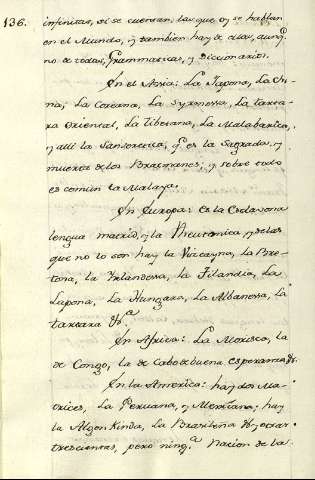 136.
infinitas, si se cuentan, las que oy se hablan
en el Mundo, y tambien hay de ellas, aunq.
no de todas, Grammaticas, y Diccionarios.
En el Asia: La Japona, La Chi-
na, La Coreana, La Syronessa, La tarta-
ra Oriental, La Tibetana, La Malabarica,
y alli la Sanscretica, q. es la Sagrada, y
muerta de los Bracmanes; y sobre todo
es comun la Malaya.
En Europa: es la Esclavona
lengua matriz, y la Theutonica, y de las
que no lo son hay la Vizcayna, la Bre-
tona, la Yrlandessa, la Filandia, La
Lapona, La Hungara, La Albanessa, La
tartara &.a
En Africa: La Morisca, la
de Congo, la de Cabo de buena esperanza &.
En la America: hay dos Ma-
trices, La Peruana, y Mexicana; hay
la Algonkinda, La Brasileña &. y otras
trescientas, pero ning.a Nacion de la